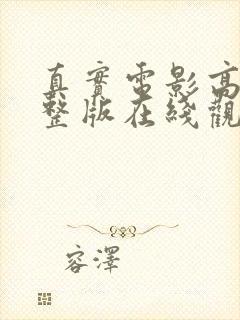 真實電影高
整版在綫觀
容澤